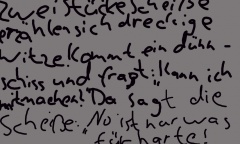 zwei stücke scheisse
erzählen sich dreckige
witze kommt ein dünn-
schiss und fragt:„kann ich
mitmachen!"Da sagt die
Scheise:„No ist nur was
für harte!